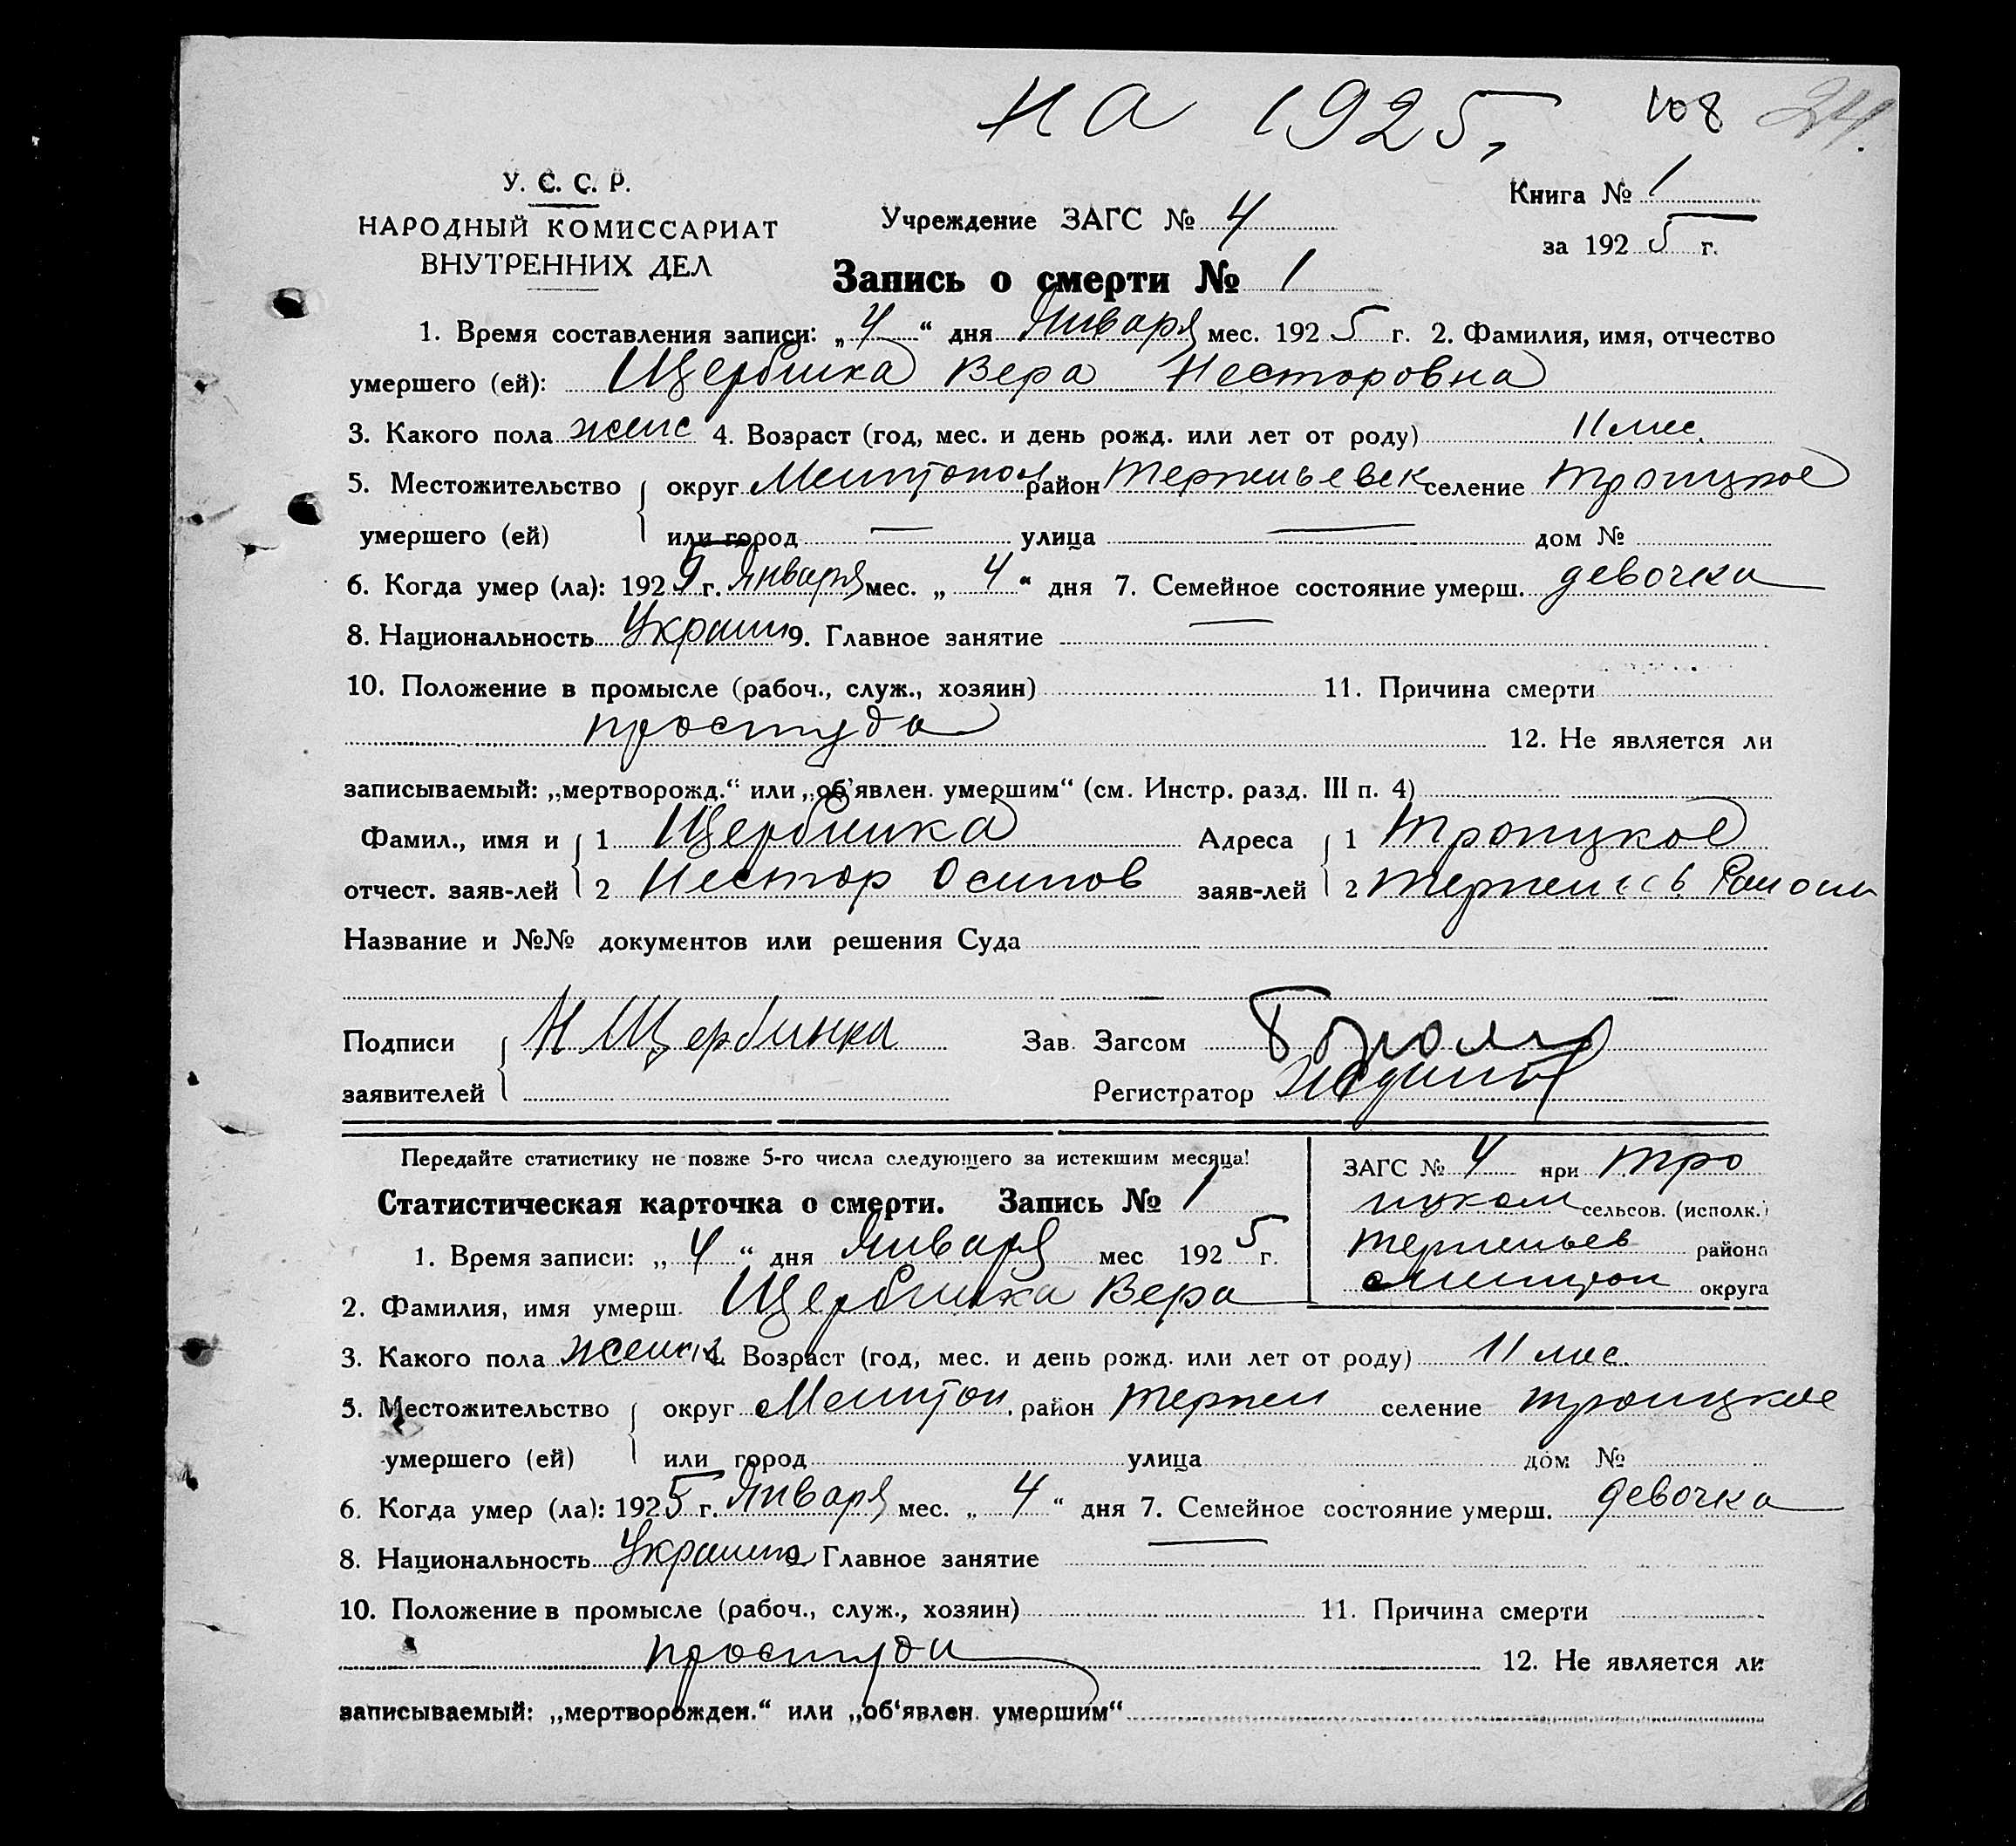 На 1925, 108 24.
У. С. С. Р.
НАРОДНЫЙ КОМИССАРИАТ
ВНУТРЕННИХ ДЕЛ
Учреждение ЗАГС № 4
Книга № 1
за 1925 г.
Запись о смерти № 1
1. Время составления записи: „4“ дня Января мес. 1925 г. 2. Фамилия, имя, отчество
умершего (ей): Щербинка Вера Несторовна
3. Какого пола женс 4. Возраст (год, мес. и день рожд. или лет от роду) 11 мес.
5. Местожительство округ Мелитопол район Терпеньевск селение Троицкое
умершего (ей) или город — улица — дом №
6. Когда умер (ла): 1925 г. Января мес. „4“ дня 7. Семейное состояние умерш. девочка
8. Национальность Украин 9. Главное занятие —
10. Положение в промысле (рабоч., служ., хозяин) 11. Причина смерти
простуда 12. Не является ли
записываемый: „мертворожд.“ или „об'явлен. умершим“ (см. Инстр. разд. III п. 4)
Фамил., имя и 1 Щербинка Адреса 1 Троицкое
отчест. заяв-лей 2 Нестор Осипов заяв-лей 2 Терпеньев Район
Название и №№ документов или решения Суда
Подписи Н Щербинка Зав. Загсом
заявителей Регистратор
Передайте статистику не позже 5-го числа следующего за истекшим месяца!
ЗАГС № 4 при Тро
ицком сельсов. (исполк.)
Терпеньев района
Мелитоп округа
Статистическая карточка о смерти. Запись № 1
1. Время записи: „4“ дня Января мес 1925 г.
2. Фамилия, имя умерш. Щербинка Вера
3. Какого пола женск 4. Возраст (год, мес. и день рожд. или лет от роду) 11 мес.
5. Местожительство округ Мелитоп. район Терпен селение Троицкое
умершего (ей) или город улица дом №
6. Когда умер (ла): 1925 г. Января мес. „4“ дня 7. Семейное состояние умерш. девочка
8. Национальность Украин 9. Главное занятие —
10. Положение в промысле (рабоч., служ., хозяин) 11. Причина смерти
простуда 12. Не является ли
записываемый: „мертворожден.“ или „об'явлен. умершим“